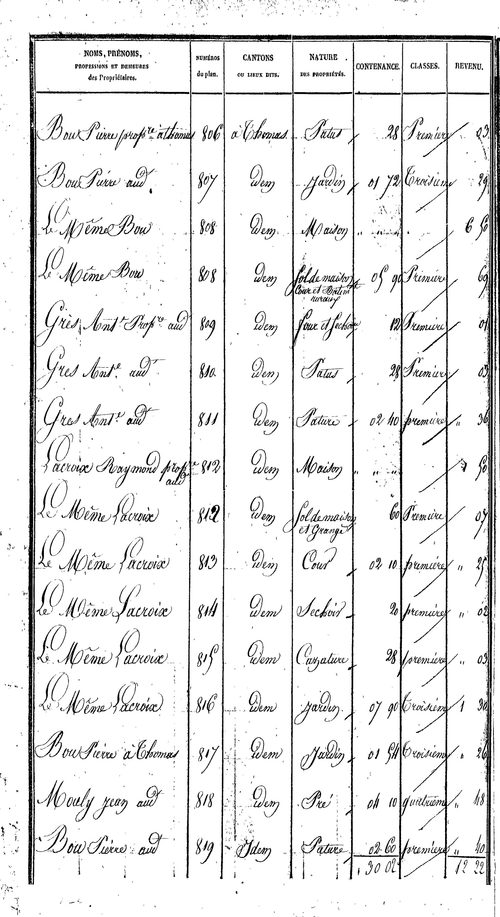 NOMS, PRÉNOMS, PROFESSIONS ET DEMEURES des Propriétaires. NUMÉROS du plan. CANTONS OU LIEUX DITS. NATURE DES PROPRIÉTÉS. CONTENANCE. CLASSES. REVENU.
Bou Pierre propre à thomas 806 à Thomas Patus 28 Première 03
Bou Pierre aud. 807 idem Jardin 01 72 Troisième 29
Le Même Bou 808 idem Maison 6 50
Le Même Bou 808 idem Sol de maison 05 90 Première 69
Cour et Batimt ruraux
Grès Ante Propre aud 809 idem four et Sechoir 12 Première 01
Gres Ante. aud 810 idem Patus 28 Première 03
Gres Ante aud 811 idem Pature 02 40 première " 36
Lacroix Raymond propre 812 idem Maison " " " 50
aud
Le Même Lacroix 812 idem Sol de maison 60 Première 07
et Grange
Le Même Lacroix 813 idem Cour 02 10 première " 25
Le Même Lacroix 814 idem Sechoir 20 première " 02
Le Même Lacroix 815 idem 28 première " 03
Le Même Lacroix 816 idem Jardin 07 90 Troisième 1 30
Bou Pierre à Thomas 817 idem Jardin 01 54 Troisième " 26
Mouly jean aud 818 idem Pré 04 10 quatrième " 48
Bou Pierre aud 819 Idem Pature 02 60 première " 40
30 02 12 22